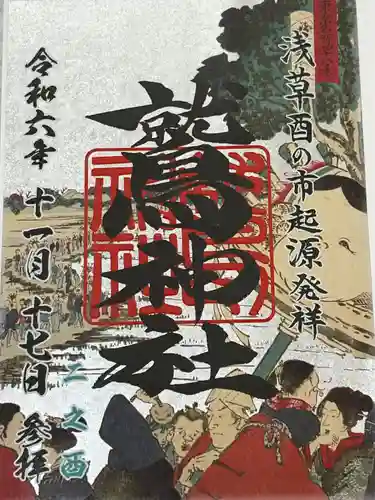 浅草酉の市起源発祥
鷲神社
二之酉
令和六年 十一月 十七日 参拝